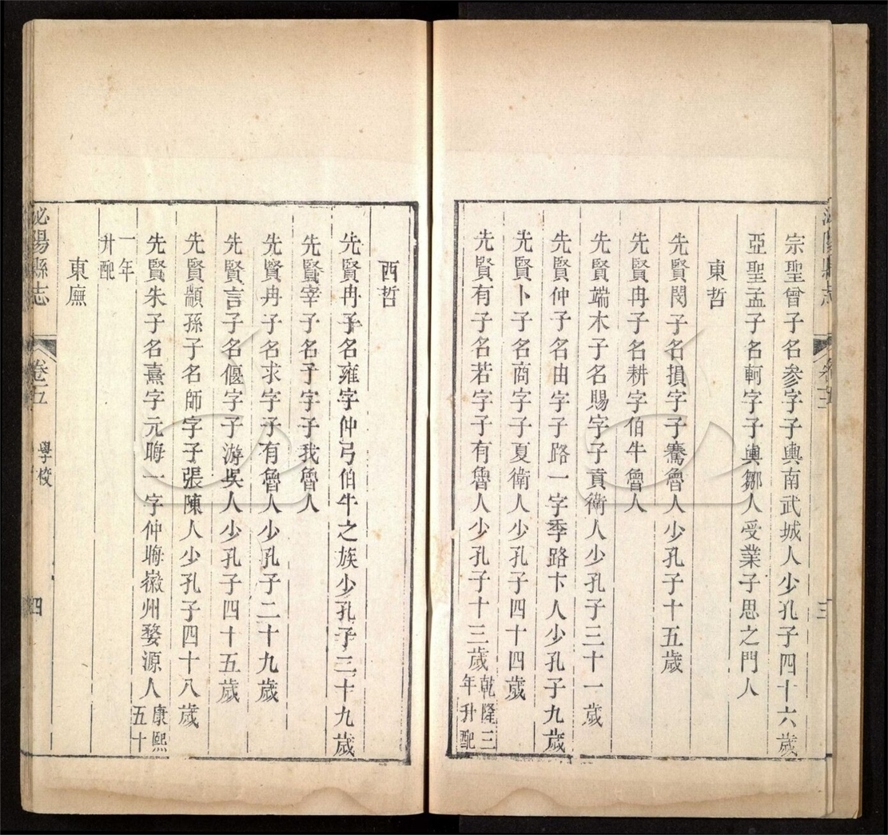 宗聖曾子名參字子輿南武城人少孔子四十六歲
亞聖孟子名軻字子輿鄒人受業子思之門人
東哲
先賢閔子名損字子騫魯人少孔子十五歲
先賢冉子名耕字伯牛魯人
先賢端木子名賜字子貢衛人少孔子三十一歲
先賢仲子名由字子路一字季路卞人少孔子九歲
先賢卜子名商字子夏衛人少孔子四十四歲
先賢有子名若字子有魯人少孔子十三歲乾隆三年升配
西哲
先賢冉子名雍字仲弓伯牛之族少孔子二十九歲
先賢宰子名予字子我魯人
先賢冉子名求字子有魯人少孔子二十九歲
先賢言子名偃字子游吳人少孔子四十五歲
先賢顓孫子名師字子張陳人少孔子四十八歲
先賢朱子名熹字元晦一字仲晦徽州婺源人康熙五十
一年升配
東廡
泌陽縣志 卷五 學校 四